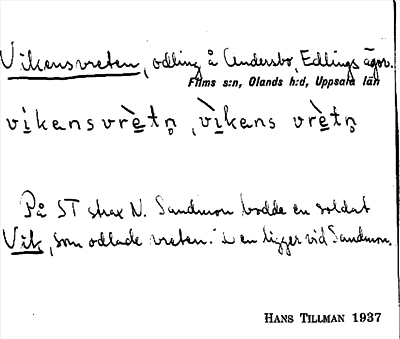 Vikensvreten, odling å Andersbo, Edlings ägor.
Films s:n, Olands h:d, Uppsala län
vìkensvrètn̥, vìkens vrètn̥
På ST strax N. Sandmon bodde en soldat
Vik, som odlade vreten. ligger vid Sandmon.
HANS TILLMAN 1937